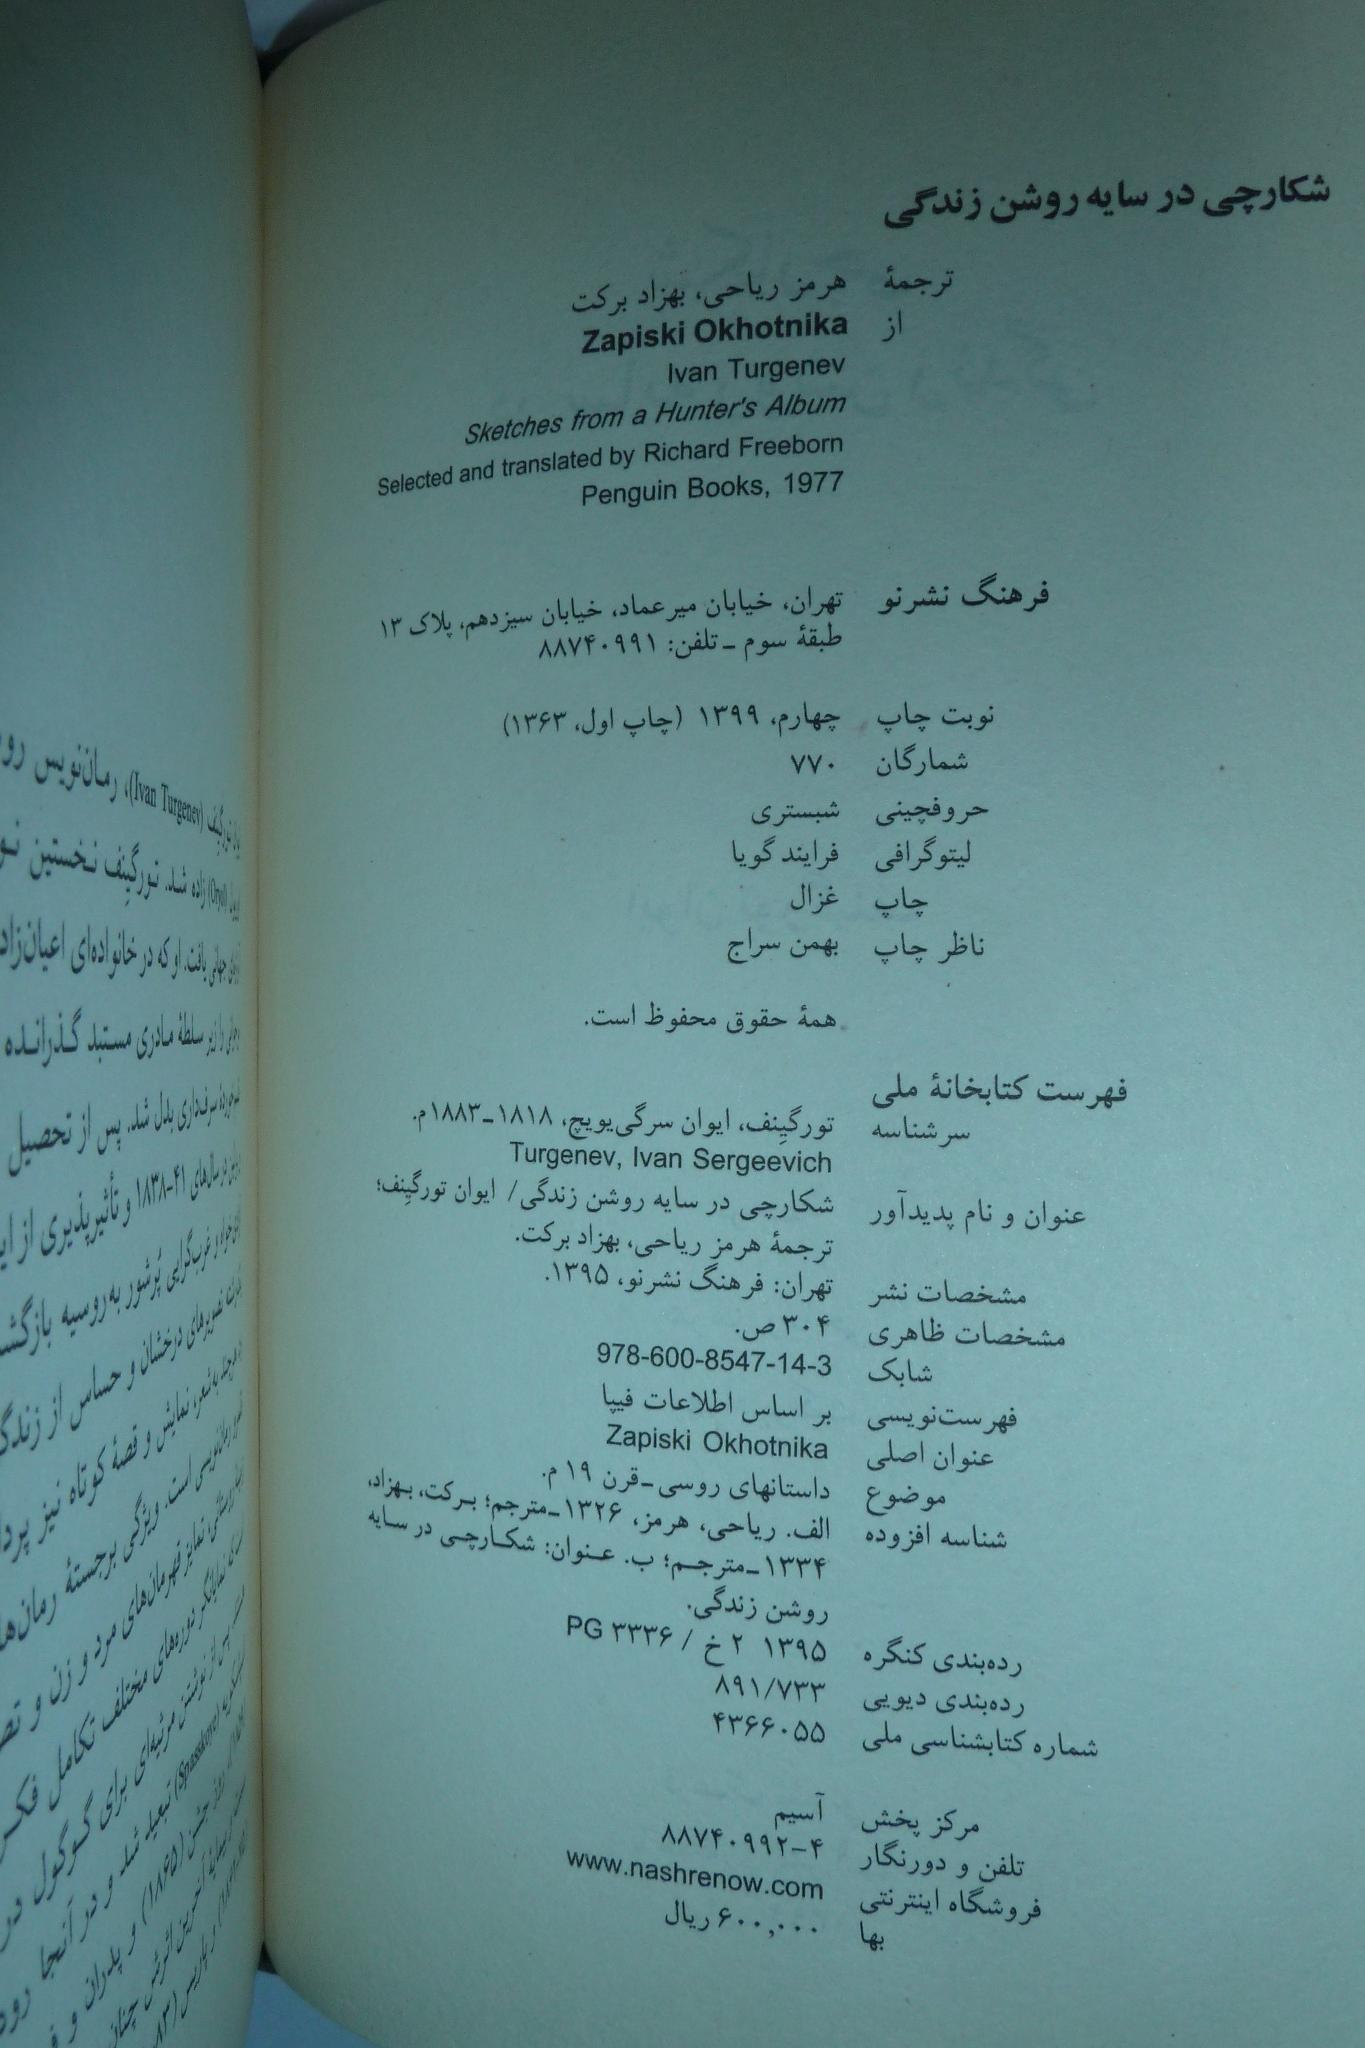 شکارچی در سایه روشن زندگی
ترجمهٔ هرمز ریاحی، بهزاد برکت
از Zapiski Okhotnika
Ivan Turgenev
Sketches from a Hunter's Album
Selected and translated by Richard Freeborn
Penguin Books, 1977
فرهنگ نشرنو تهران، خیابان میرعماد، خیابان سیزدهم، پلاک ۱۳
طبقهٔ سوم ـ تلفن: ۸۸۷۴۰۹۹۱
نوبت چاپ چهارم، ۱۳۹۹ (چاپ اول، ۱۳۶۳)
شمارگان ۷۷۰
حروفچینی شبستری
لیتوگرافی فرایند گویا
چاپ غزال
ناظر چاپ بهمن سراج
همهٔ حقوق محفوظ است.
فهرست کتابخانهٔ ملی
سرشناسه تورگِنِف، ایوان سرگی‌یویچ، ۱۸۱۸ـ۱۸۸۳م.
Turgenev, Ivan Sergeevich
عنوان و نام پدیدآور شکارچی در سایه روشن زندگی/ ایوان تورگِنِف؛
ترجمهٔ هرمز ریاحی، بهزاد برکت.
مشخصات نشر تهران: فرهنگ نشرنو، ۱۳۹۵.
مشخصات ظاهری ۳۰۴ ص.
شابک 978-600-8547-14-3
فهرست‌نویسی بر اساس اطلاعات فیپا
عنوان اصلی Zapiski Okhotnika
موضوع داستانهای روسی ـ قرن ۱۹ م.
شناسه افزوده الف. ریاحی، هرمز، ۱۳۲۶ـ مترجم؛ برکت، بهزاد،
۱۳۳۴ـ مترجم؛ ب. عنوان: شکارچی در سایه
روشن زندگی.
رده‌بندی کنگره ۱۳۹۵ ۲ خ / PG ۳۳۳۶
رده‌بندی دیویی ۸۹۱/۷۳۳
شماره کتابشناسی ملی ۴۳۶۶۰۵۵
مرکز پخش آسیم
تلفن و دورنگار ۸۸۷۴۰۹۹۲-۴
فروشگاه اینترنتی www.nashrenow.com
بها ۶۰۰,۰۰۰ ریال
(Ivan Turgenev)، رمان‌نویس
زاده شد. تورگِنِف نخستین
جهانی یافت. او که در خانواده‌ای
زیر سلطهٔ مادری مستبد گذرانده
بدل شد. پس از تحصیل
در سال‌های ۴۱-۱۸۳۸ و تأثیرپذیری از
و غرب‌گرایی پُرشور به روسیه
تصویرهای درخشان و حساس از
نمایش و قصهٔ کوتاه نیز
است. ویژگی برجستهٔ
تمایز قهرمان‌های مرد و زن و
دوره‌های مختلف تکامل
پس از نوشتن مرثیه‌ای برای گوگول در
تبعید شد و در آنجا
(۱۸۶۵) و پدران و